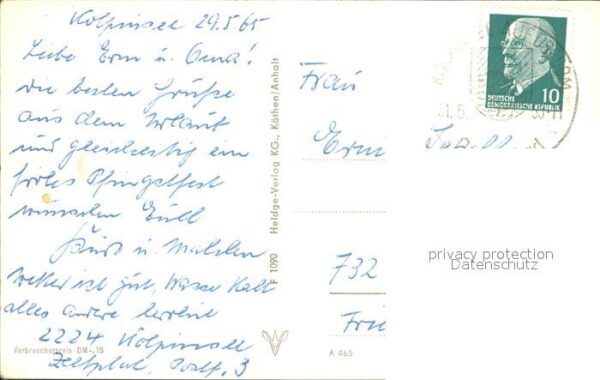 Kölpinsee 29.5.65
Liebe Erm u. Oma!
die besten Grüße
aus dem Urlaub
und gleichzeitig ein
frohes Pfingstfest
wünschen Euch
u.
Wetter ist gut, Wasser kalt
alles andere herrlich
2224 Kölpinsee
Zeltplat. Postf. 3
Verbraucherpreis DM -,15
F 1090 Heldge-Verlag KG., Köthen/Anhalt
Frau
Erm
732
A 465
10
DEUTSCHE
DEMOKRATISCHE REPUBLIK
privacy protection
Datenschutz